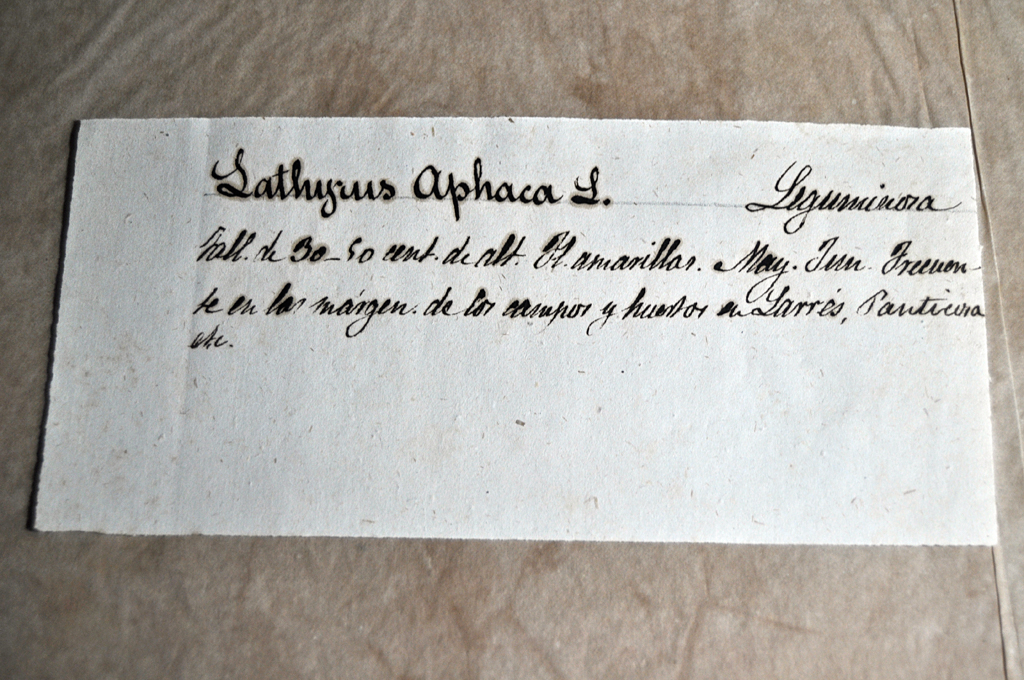 Lathyrus Aphaca L. Leguminosa
Tall. de 30-50 cent. de alt. Fl. amarillas. May. Jun. Frecuen-
te en los márgen. de los campos y huertos en Larrés, Panticosa
etc.